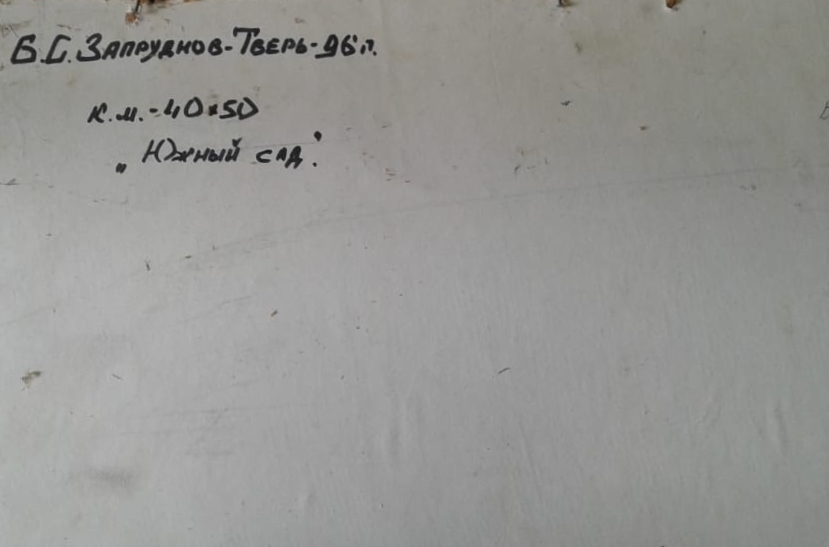 Б.С. Запруднов-Тверь-96г.
к.м.-40×50
„Южный сад".